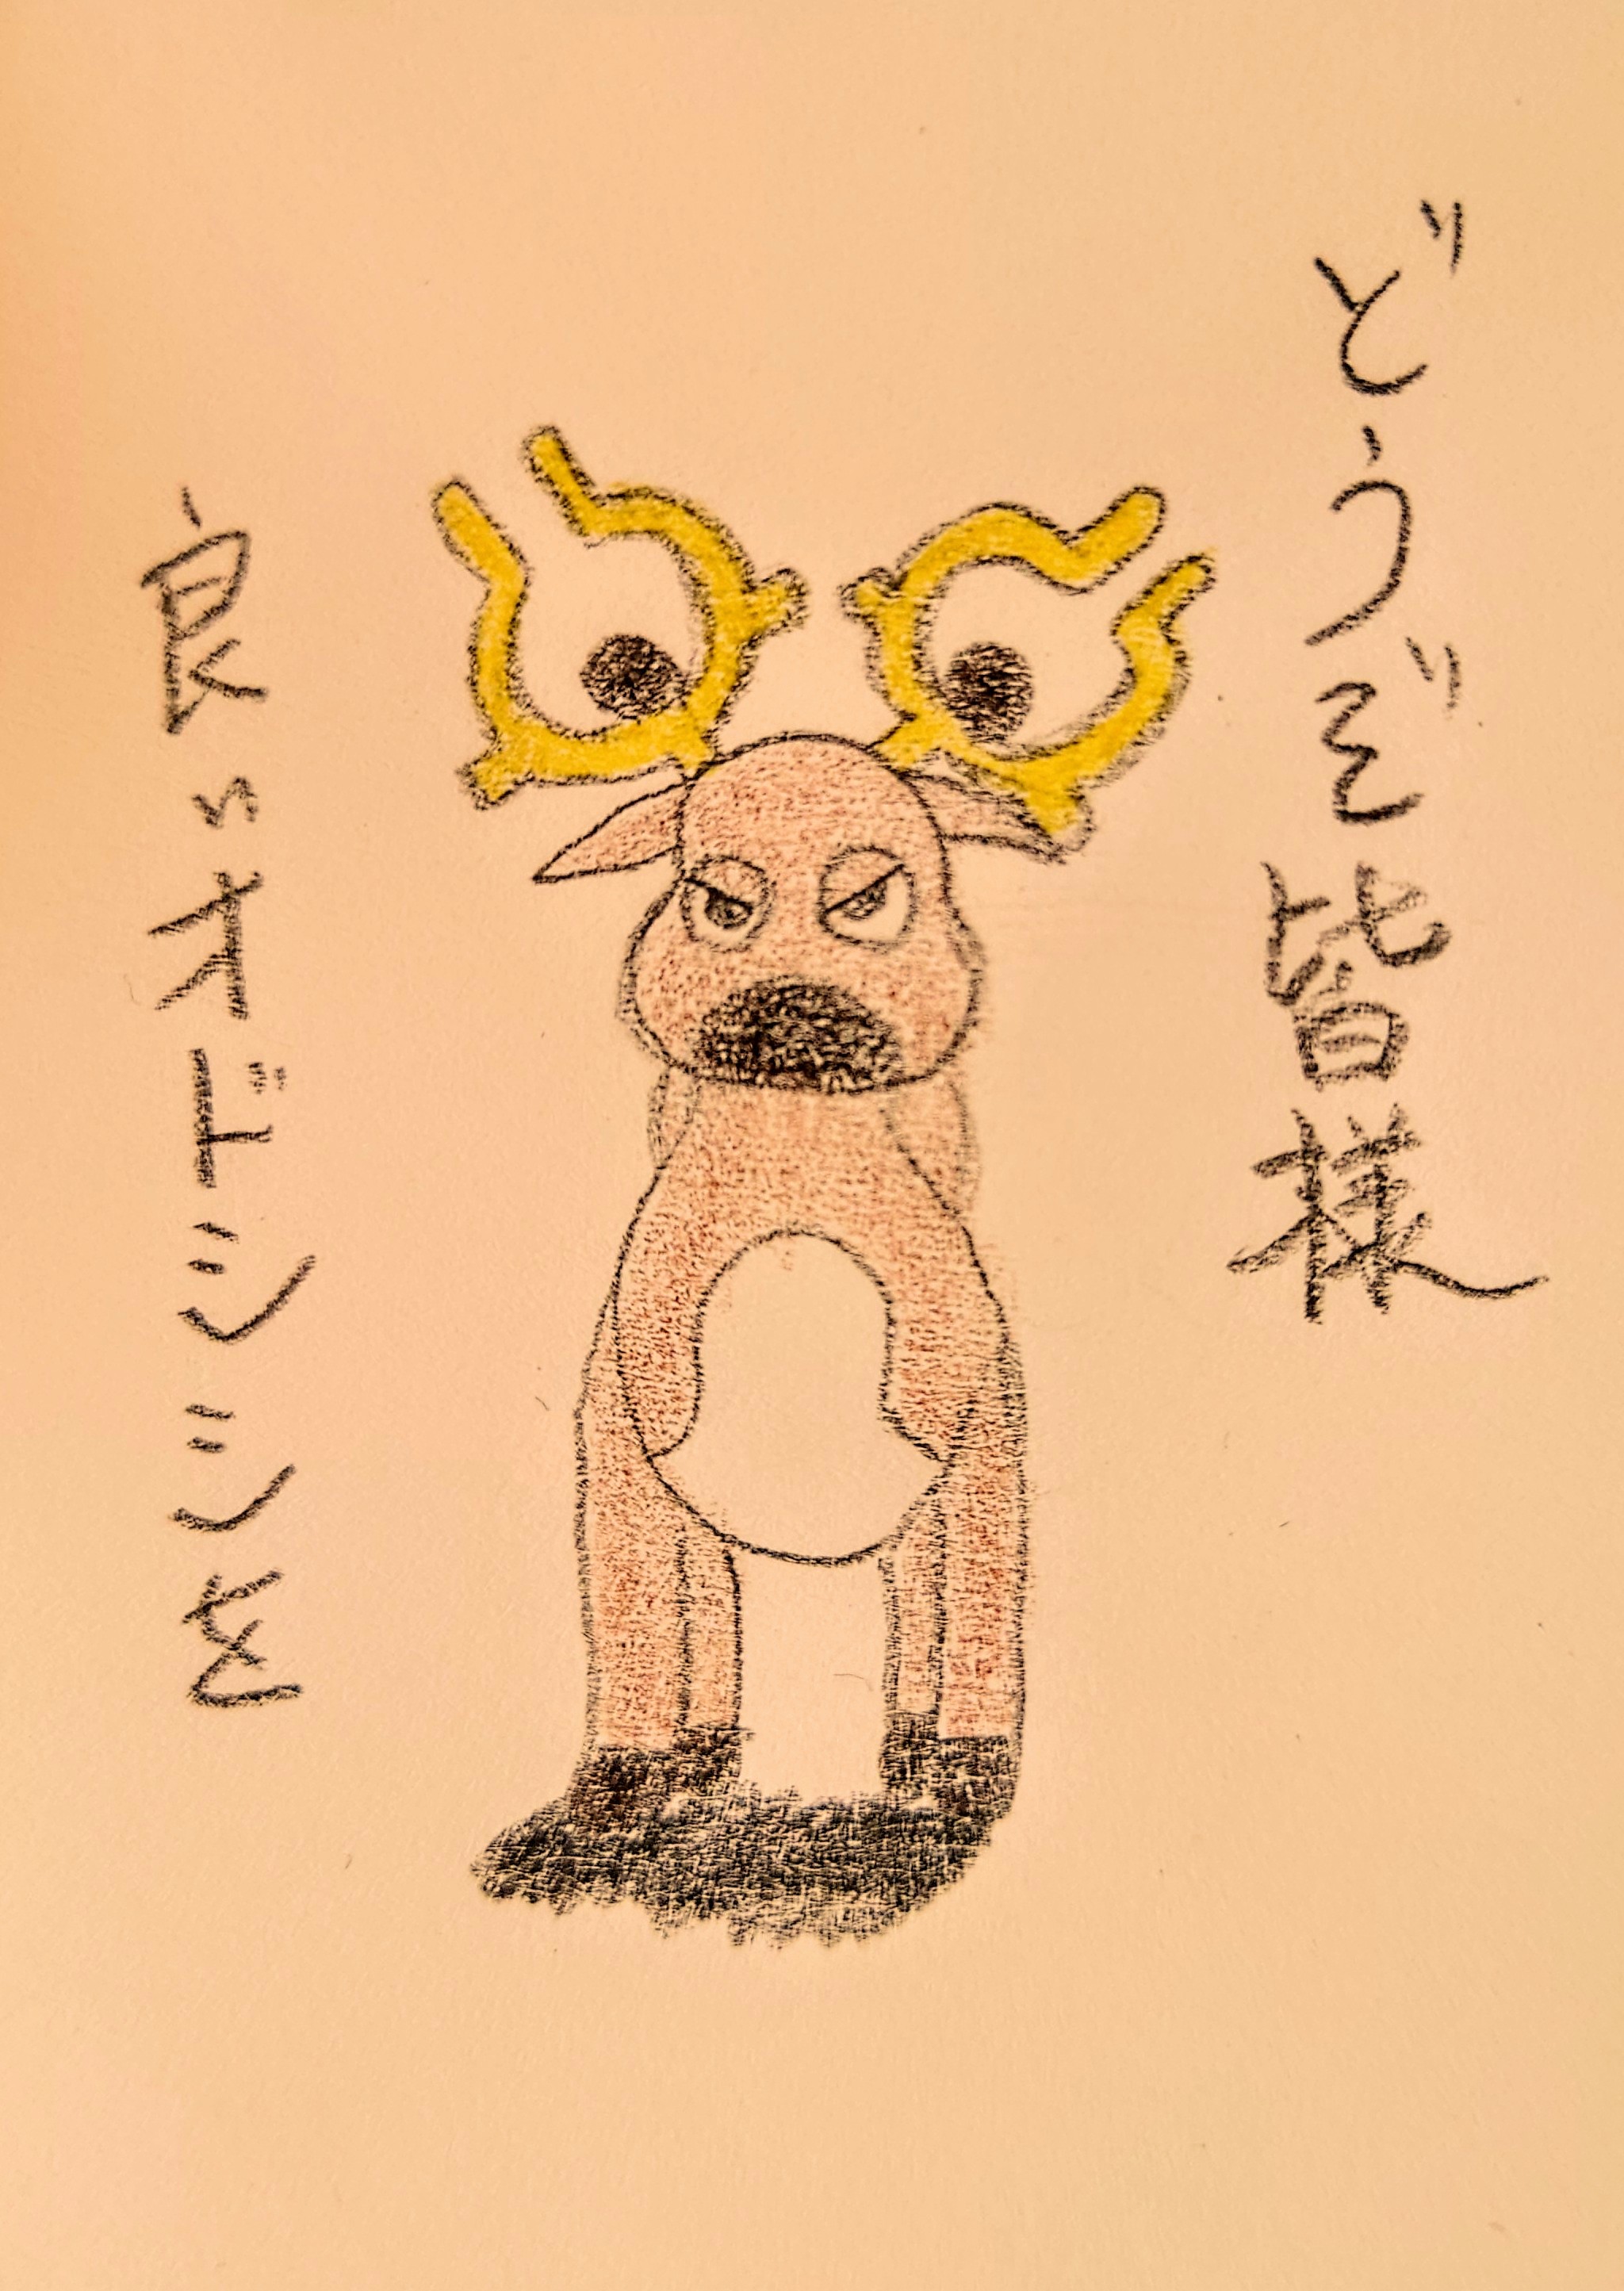 どうぞ皆様
良いオドシシを